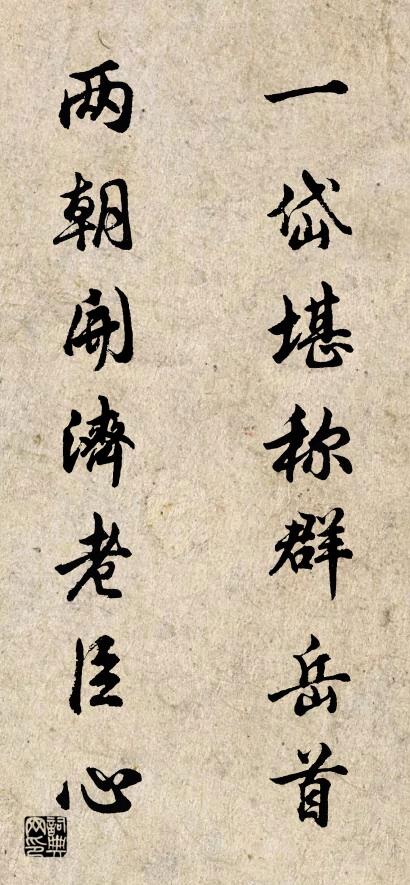 一岱堪称群岳首
两朝開濟老臣心
詞典网印